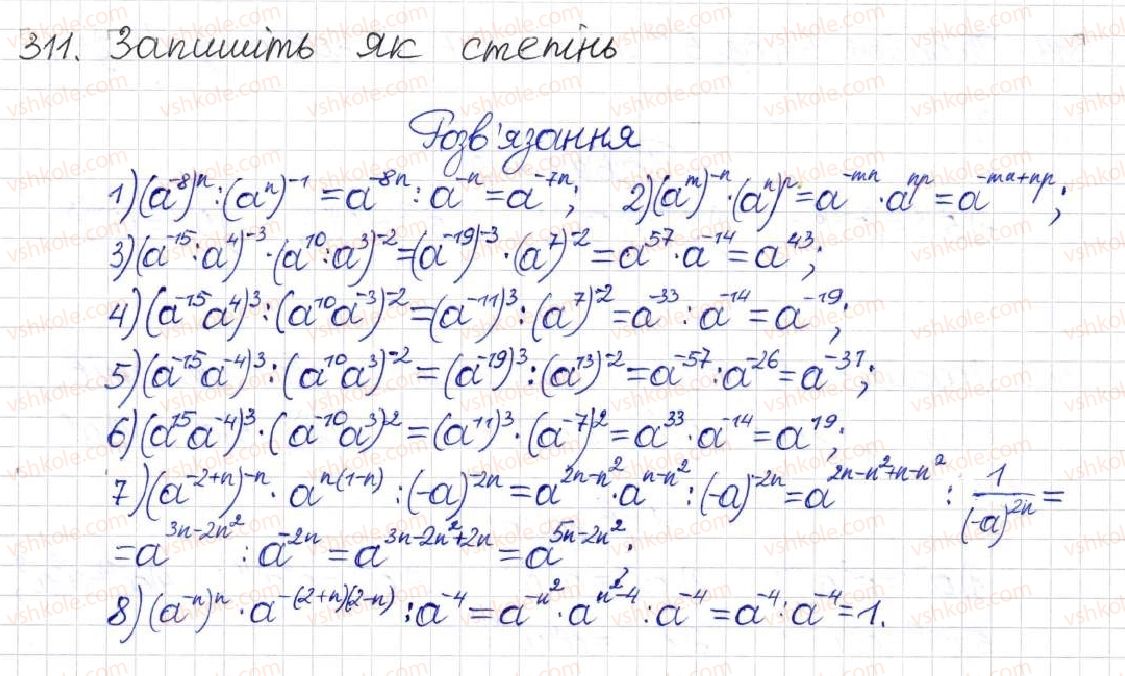 311. Запишіть як степінь
Розв'язання
1) (a⁻⁸)ⁿ : (aⁿ)⁻¹ = a⁻⁸ⁿ : a⁻ⁿ = a⁻⁷ⁿ; 2) (aᵐ)⁻ⁿ · (aⁿ)ᵖ = a⁻ᵐⁿ · aⁿᵖ = a⁻ᵐⁿ⁺ⁿᵖ;
3) (a⁻¹⁵ : a⁴)⁻³ · (a¹⁰ : a³)⁻² = (a⁻¹⁹)⁻³ · (a⁷)⁻² = a⁵⁷ · a⁻¹⁴ = a⁴³;
4) (a⁻¹⁵a⁴)³ : (a¹⁰a⁻³)⁻² = (a⁻¹¹)³ : (a⁷)⁻² = a⁻³³ : a⁻¹⁴ = a⁻¹⁹;
5) (a⁻¹⁵a⁻⁴)³ : (a¹⁰a³)⁻² = (a⁻¹⁹)³ : (a¹³)⁻² = a⁻⁵⁷ : a⁻²⁶ = a⁻³¹;
6) (a¹⁵a⁻⁴)³ · (a⁻¹⁰a³)² = (a¹¹)³ · (a⁻⁷)² = a³³ · a⁻¹⁴ = a¹⁹;
7) (a^(-2+n))^(-n) · a^(n(1-n)) : (-a)^(-2n) = a^(2n-n²) · a^(n-n²) : (-a)^(-2n) = a^(2n-n²+n-n²) : 1/(-a)^(2n) =
= a^(3n-2n²) : a^(-2n) = a^(3n-2n²+2n) = a^(5n-2n²);
8) (a⁻ⁿ)ⁿ · a^(-(2+n)(2-n)) : a⁻⁴ = a^(-n²) · a^(n²-4) : a⁻⁴ = a⁻⁴ : a⁻⁴ = 1.